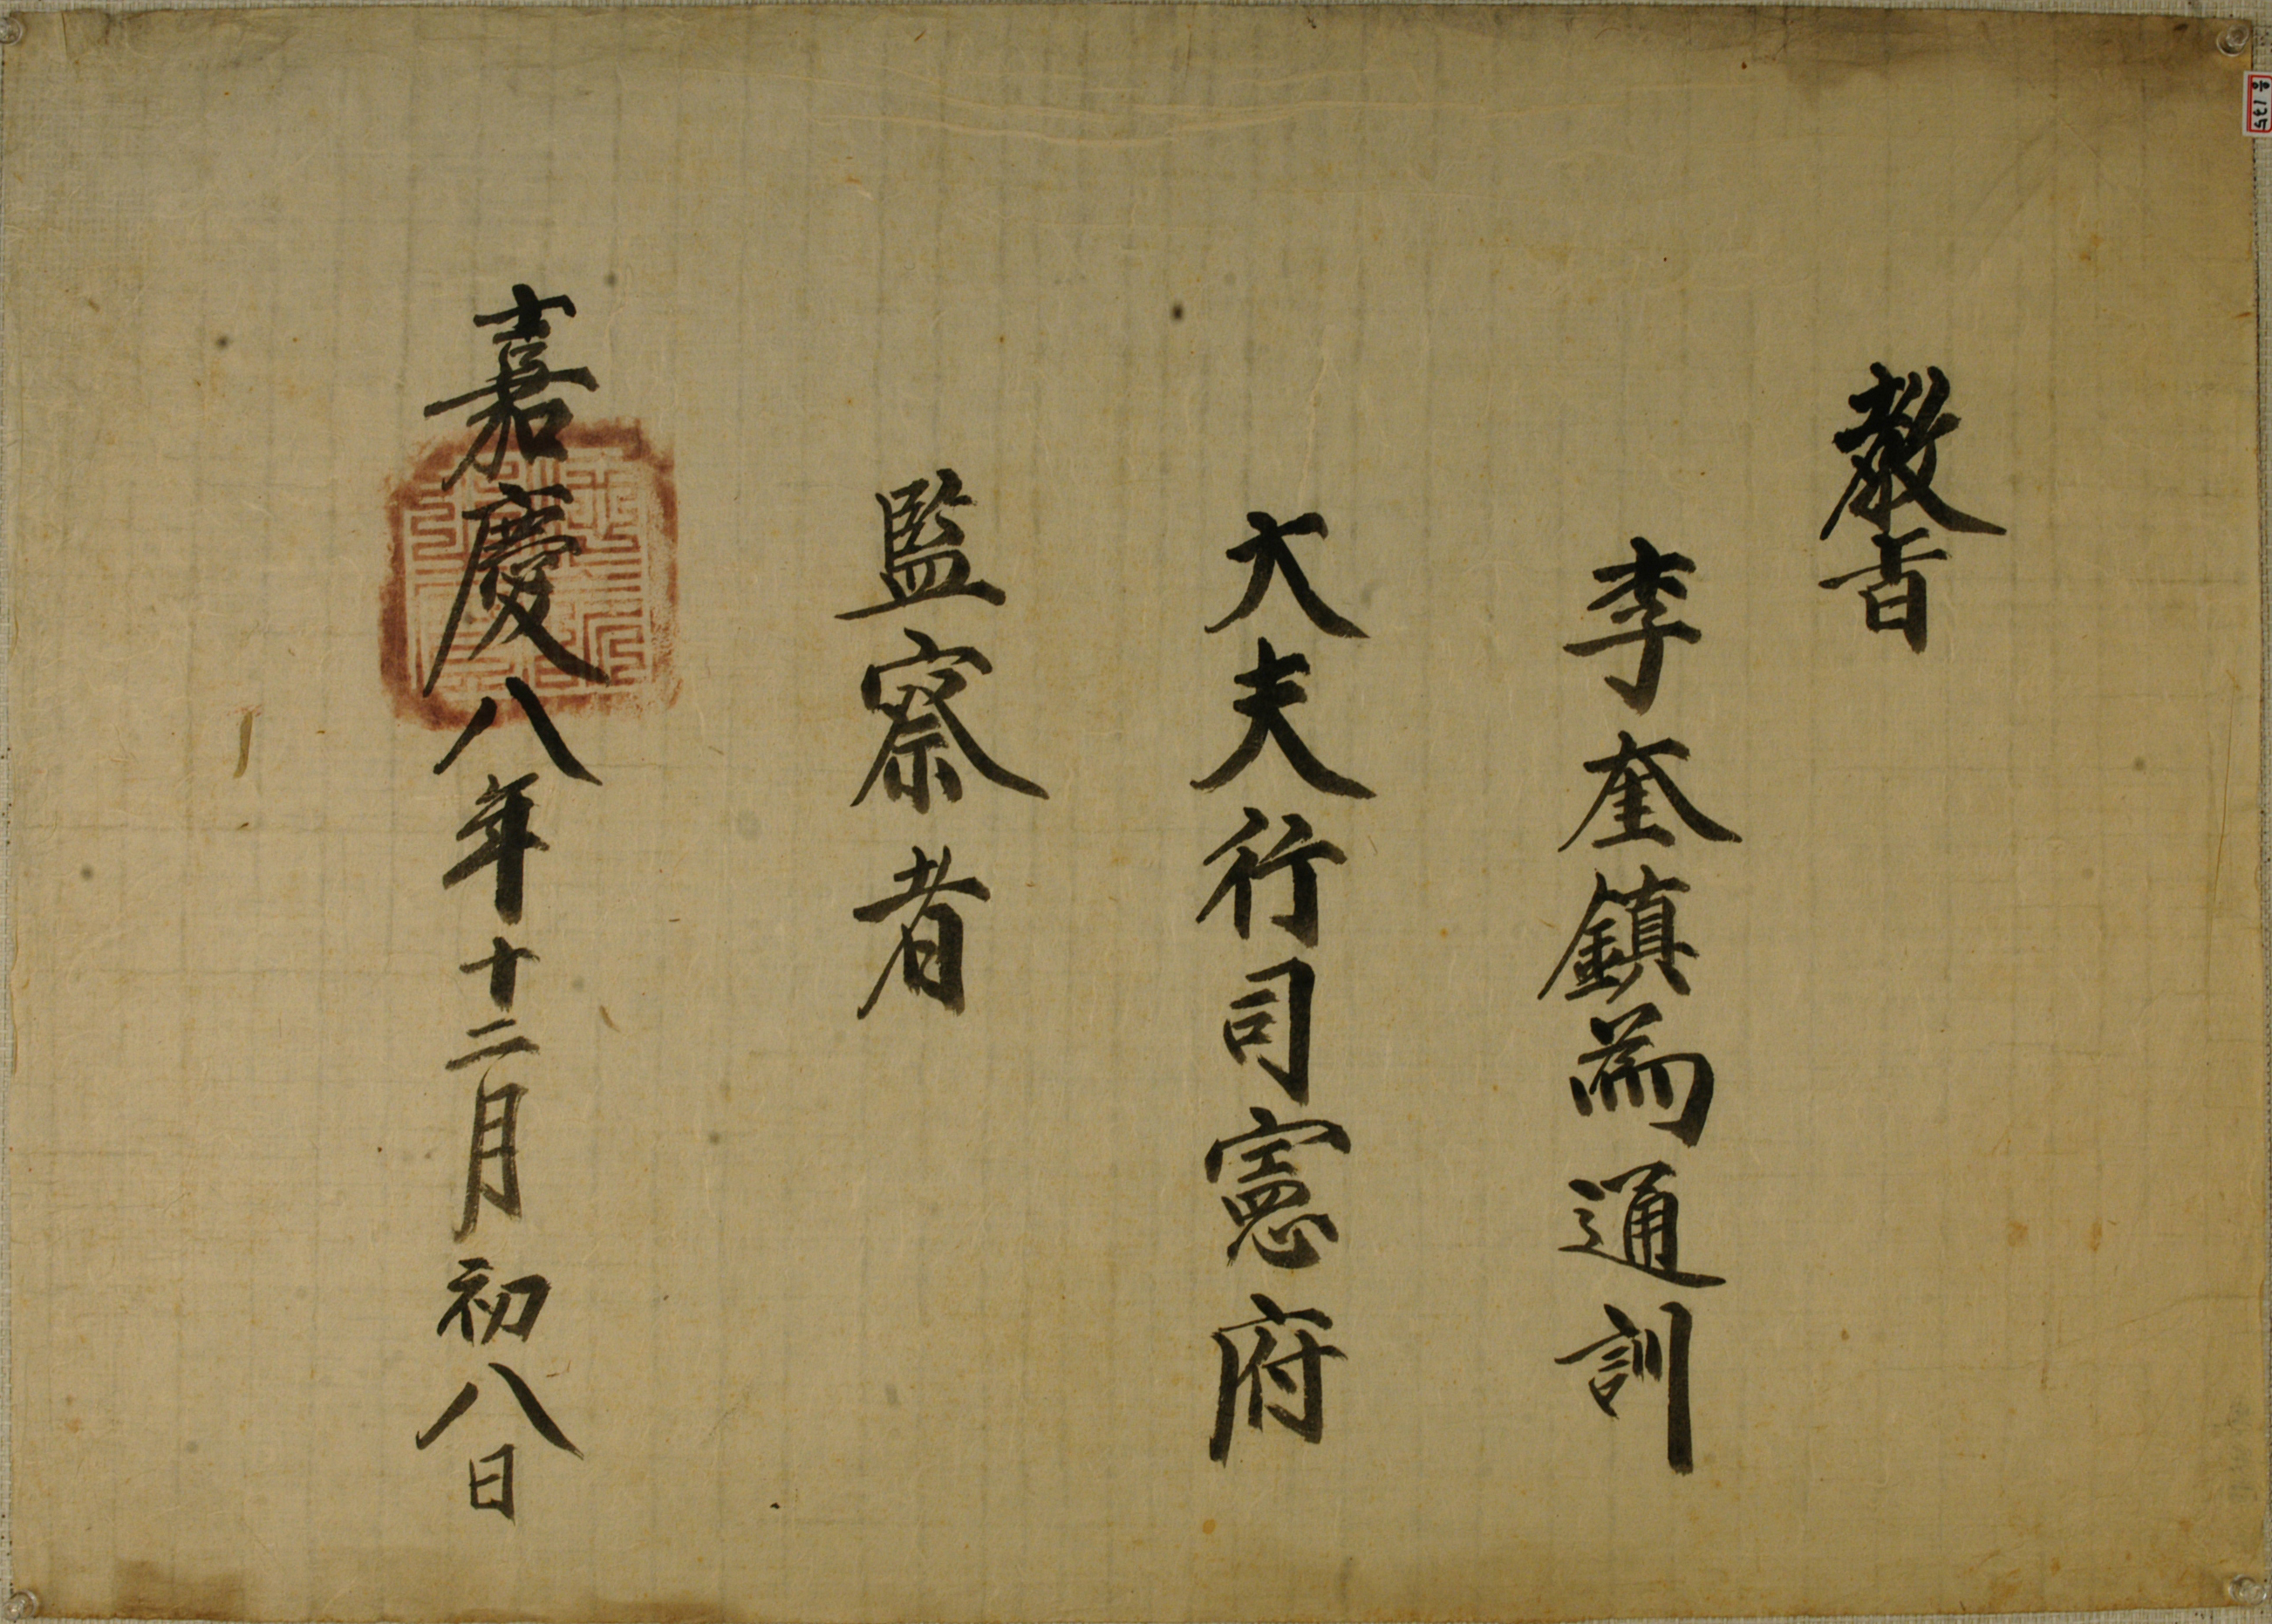 教旨
李奎鎭爲通訓
大夫行司憲府
監察者
嘉慶八年十二月初八日